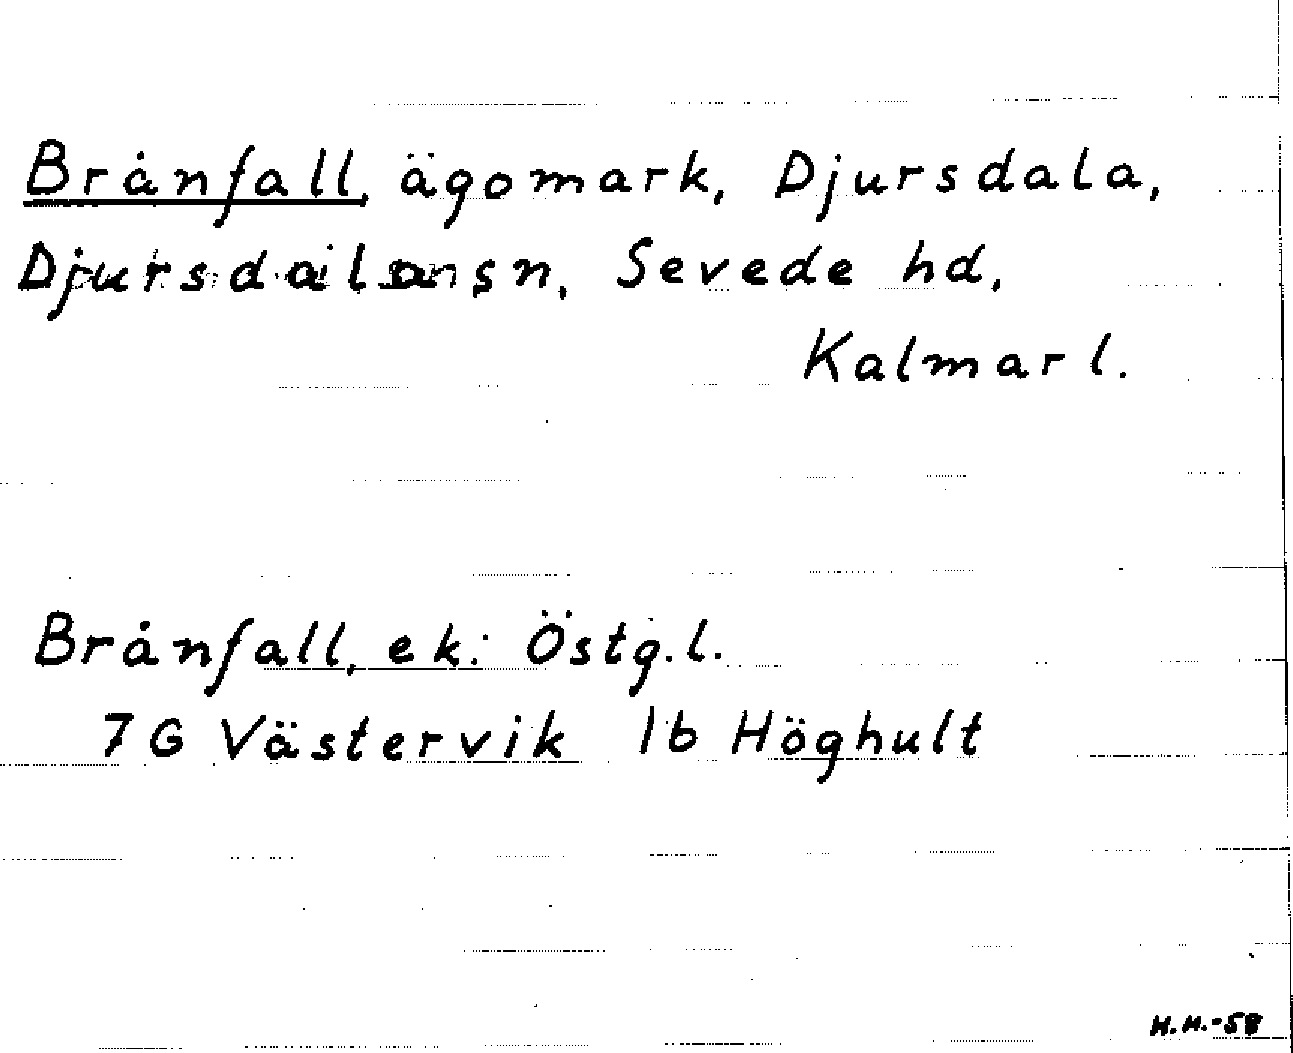 Brånfall, ägomark, Djursdala,
Djursdala sn, Sevede hd,
Kalmar l.
Brånfall, ek: Östg.l.
7G Västervik 1b Höghult
H.H.-58